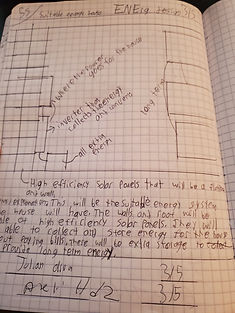 55/ Suitable energy house ENErg design 3/5
where the power
goes for the house
inverter that
collects the energy
and converts
long term
all extra
energy
High efficiency Solar Panels that will be a flooring
and walls.
This will be the suitable energy system
house will have. The walls and roof will be
of high efficiency solar panels. They will
able to collect and store energy for the house
out paying bills. there will be extra storage to
provide long term energy.
Julian 3/5
3/5